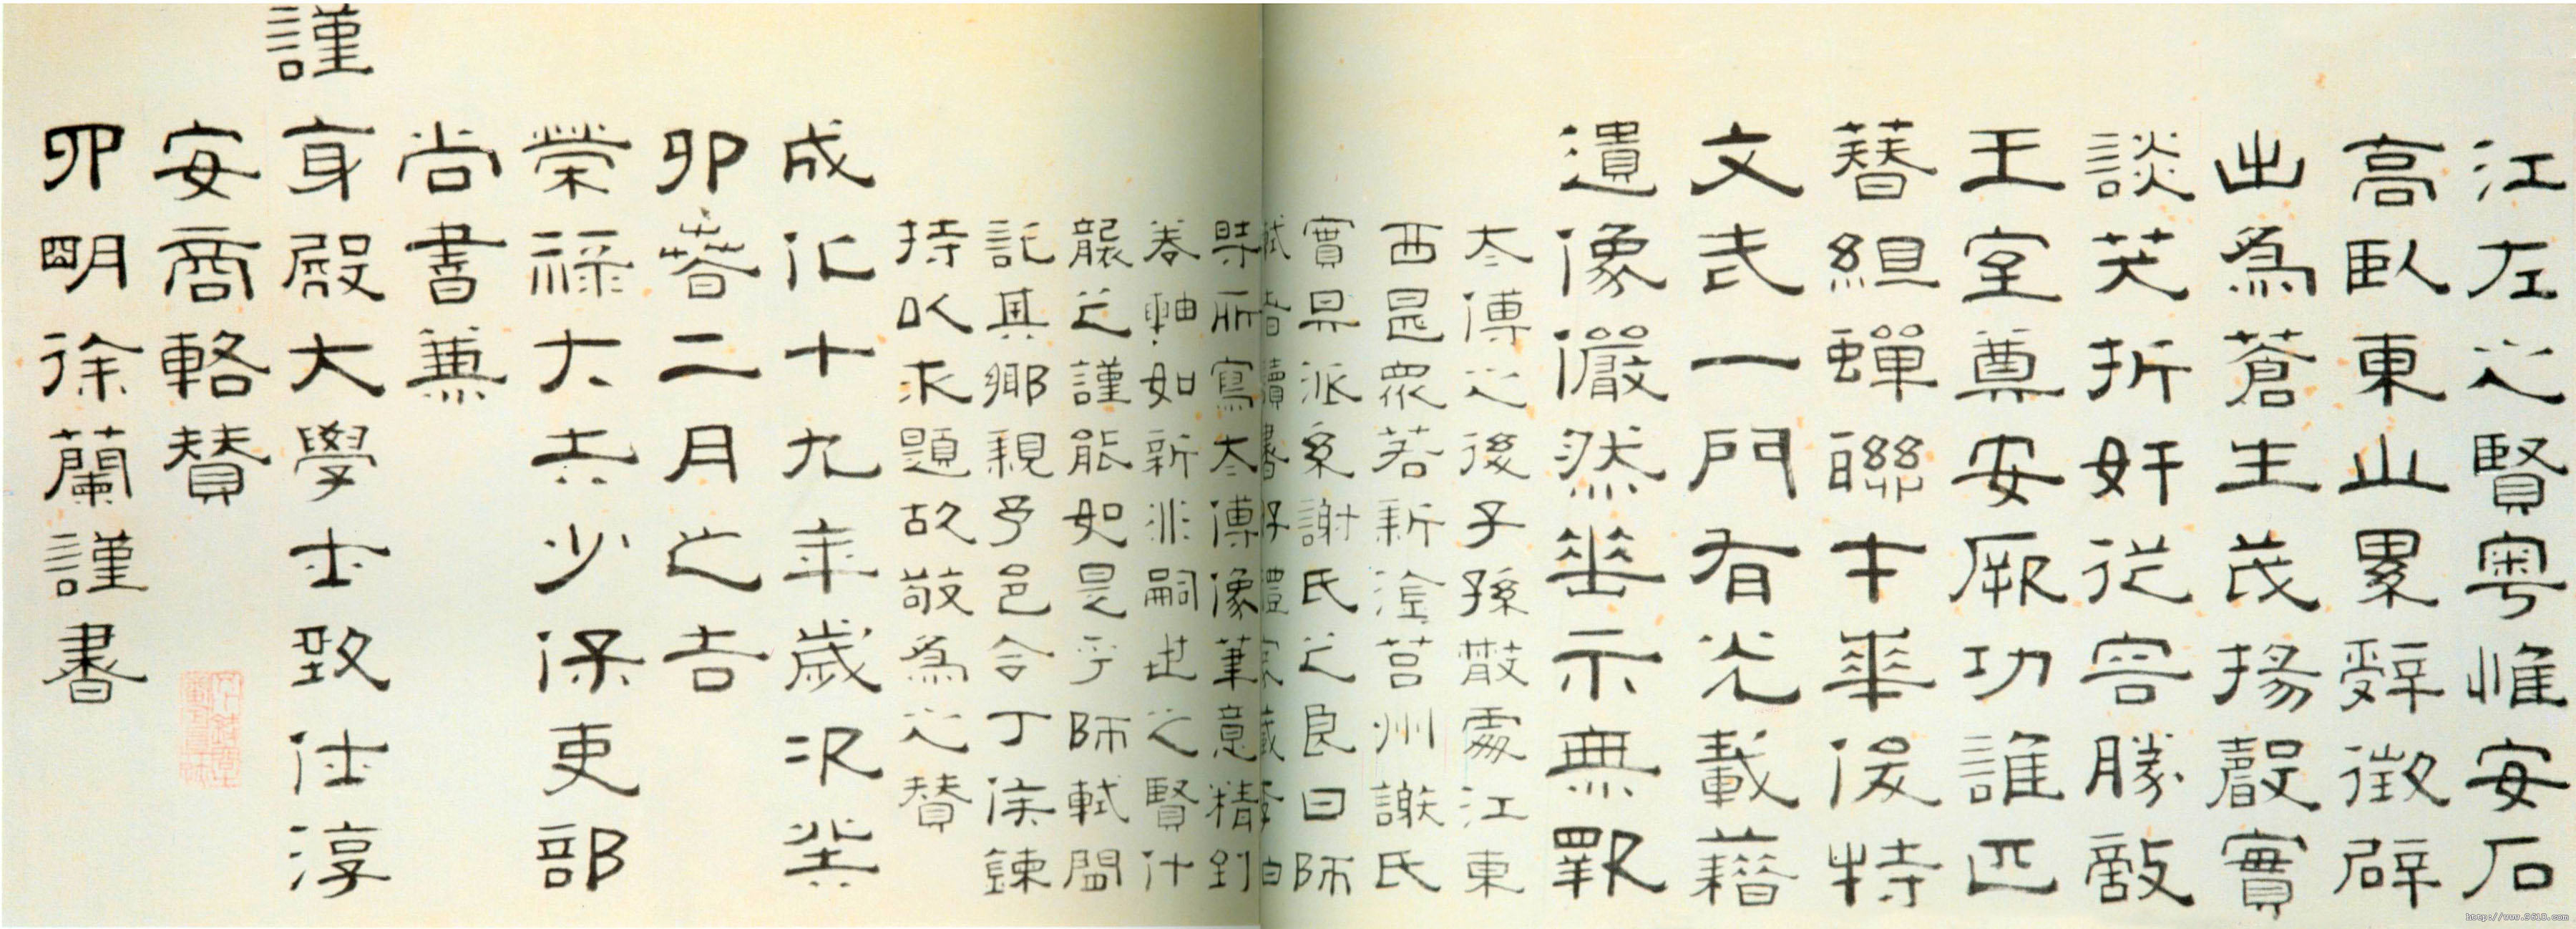 江左之賢粵惟安石
高臥東山累辭徵辟
出為蒼生茂揚聲實
談笑折奸從容勝敵
王室尊安厥功誰匹
簪組蟬聯才華俊特
文武一門有光載籍
遺像儼然昭示無斁
太傅之後子孫散處江東
西最眾若新淦莒州謝氏
實其派系謝氏之良曰師
軾者讀書好禮家藏晉伯
時所寫太傅像筆意精到
卷軸如新非嗣世之賢什
襲之謹能如是乎師軾間
託其鄉親予邑令丁侯鍊
持以求題故敬為之贊
成化十九年歲次癸
卯春二月之吉
榮祿大夫少保吏部
尚書兼
謹身殿大學士致仕淳
安商輅贊
四明徐蘭謹書
http://www.9610.com